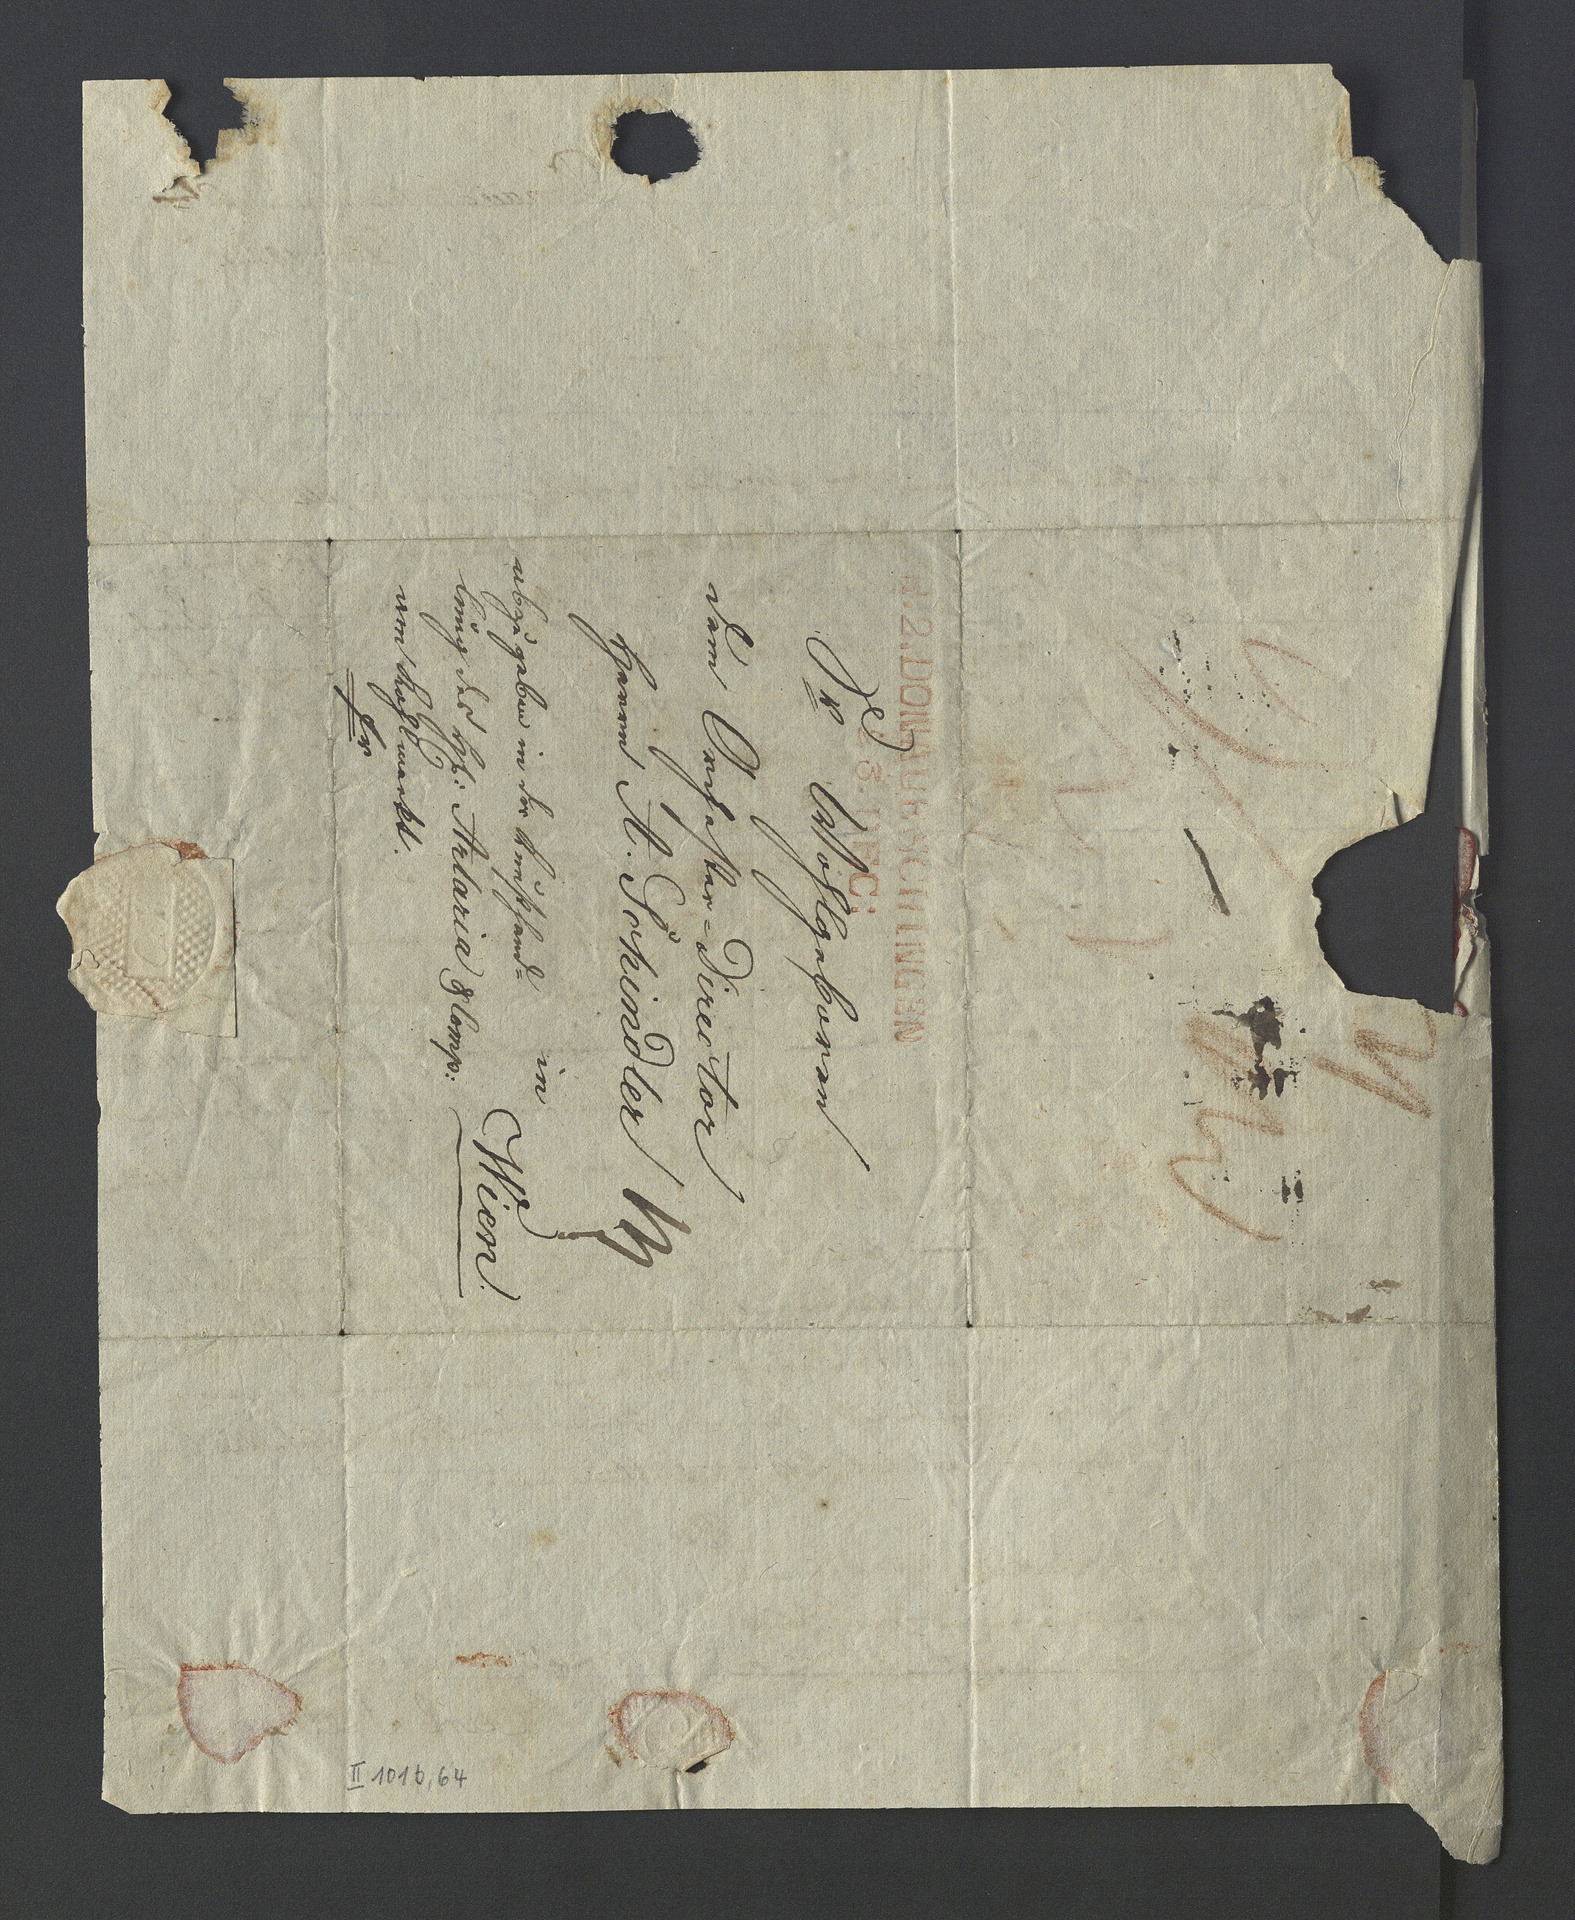 R.2.DONAUESCHINGEN
23. DEC:
Sr Wohlgeboren
dem Orchester-Director
Herrn A. Schindler
in
Wien.
abzugeben in der Kunsthand=
lung des H: Artaria & Comp:
am Kohlmarkt.
fr
II 101b,64